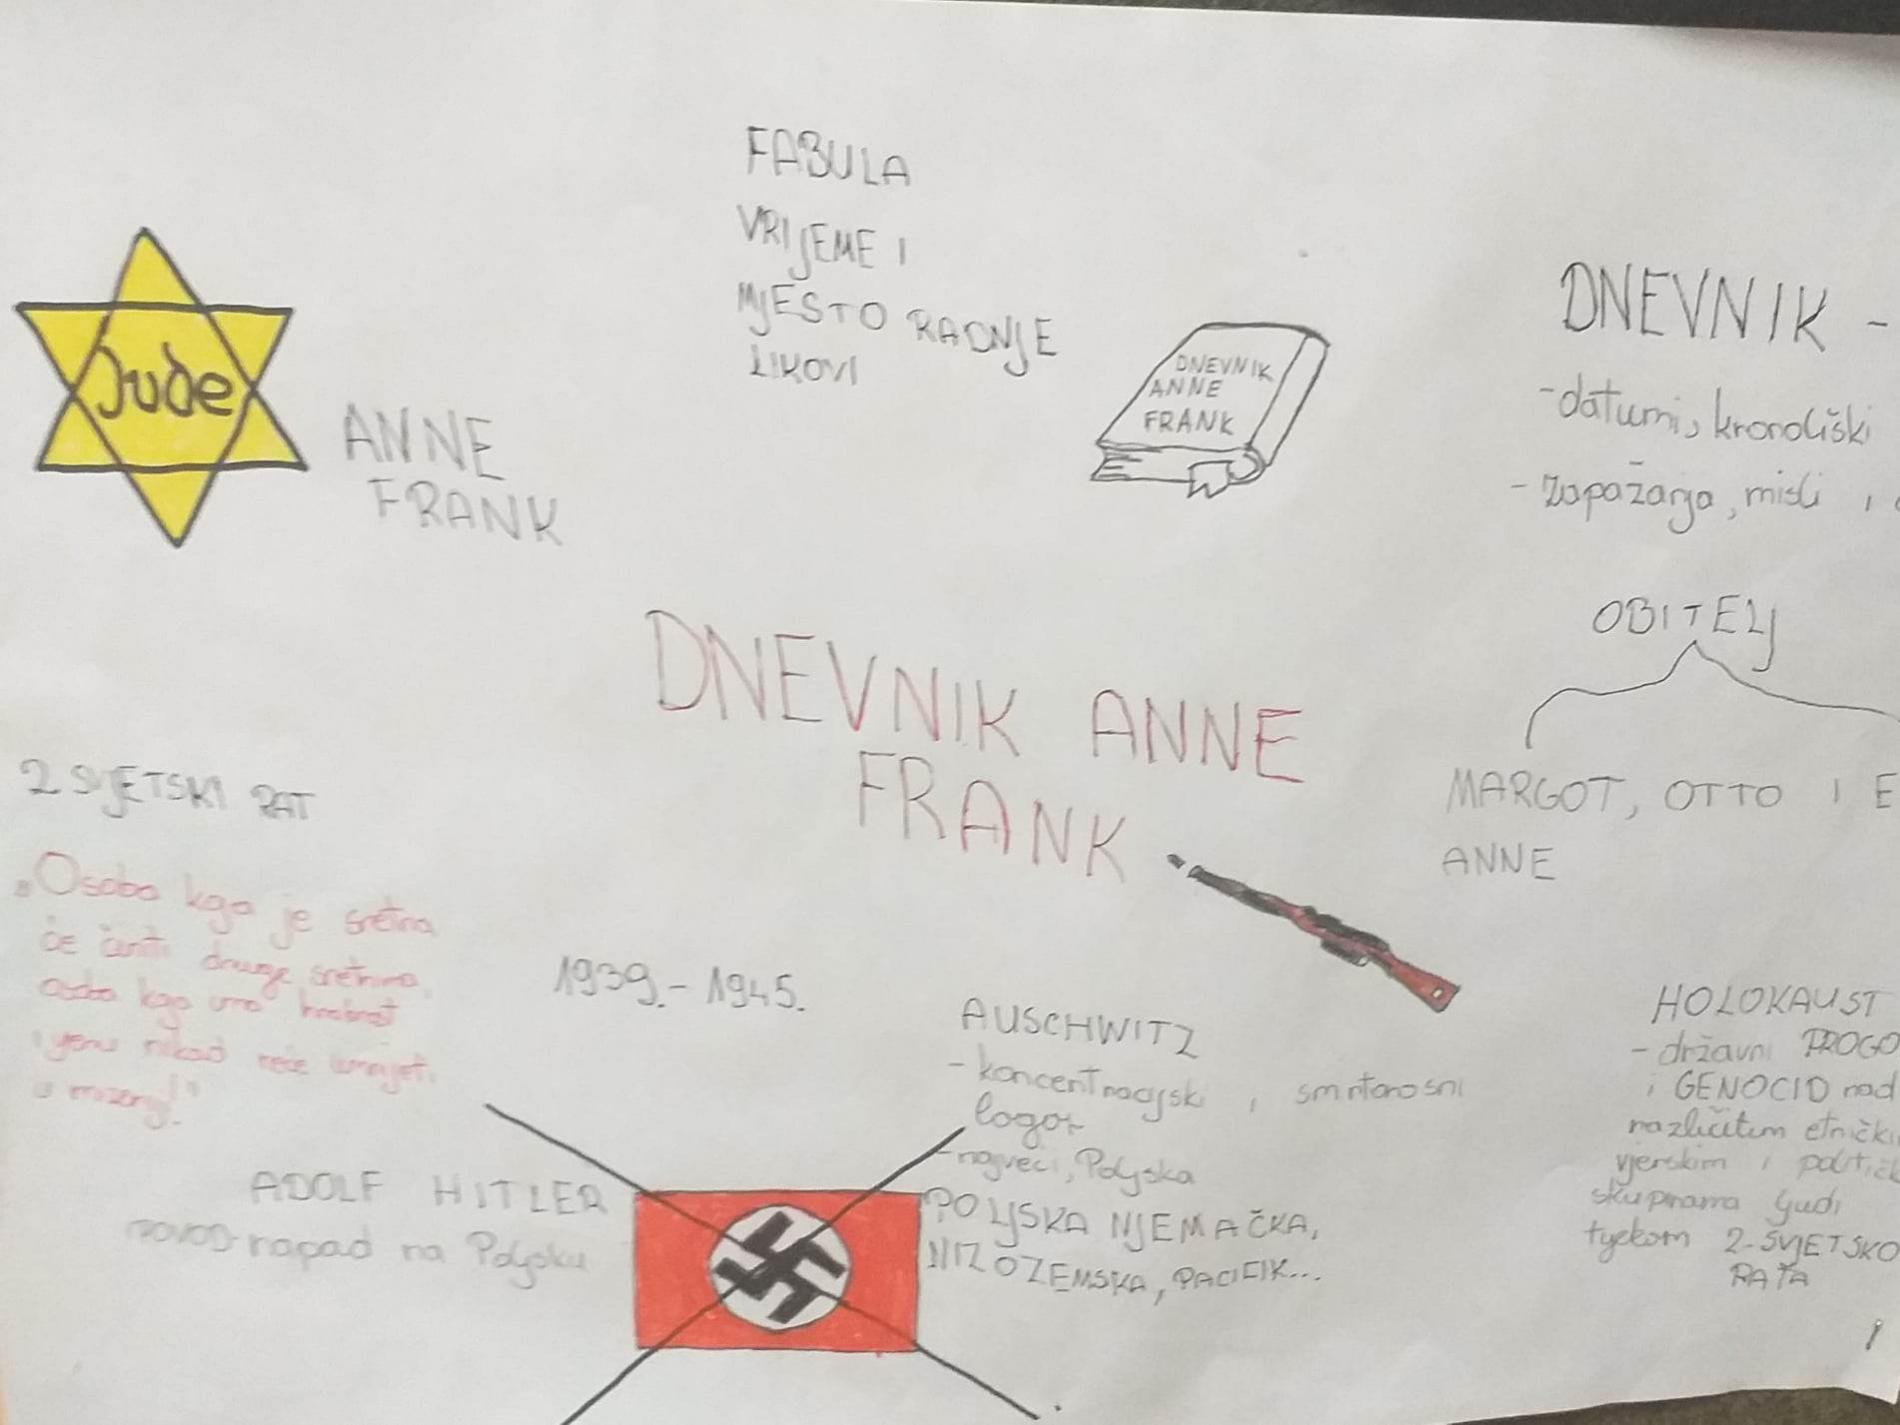 FABULA
VRIJEME I
MJESTO RADNJE
LIKOVI
Jude
ANNE
FRANK
DNEVNIK
ANNE
FRANK
DNEVNIK -
-datumi, kronoliški
- zapažanja, misli i
OBITELJ
MARGOT, OTTO I E
ANNE
DNEVNIK ANNE
FRANK
2 SVJETSKI RAT
„Osoba koja je sretna
će činiti druge sretnima,
osoba koja ima hrabrost
i vjeru nikad neće umrijeti
u mizeriji!"
1939.- 1945.
AUSCHWITZ
- koncentracijski i smrtonosni
logor
-najveći, Poljska
POLJSKA NJEMAČKA,
NIZOZEMSKA, PACIFIK...
ADOLF HITLER
povod-napad na Poljsku
HOLOKAUST
- državni PROGO
i GENOCID nad
različitim etnički
vjerskim i politič
skupinama ljudi
tijekom 2-SVJETSKO
RATA